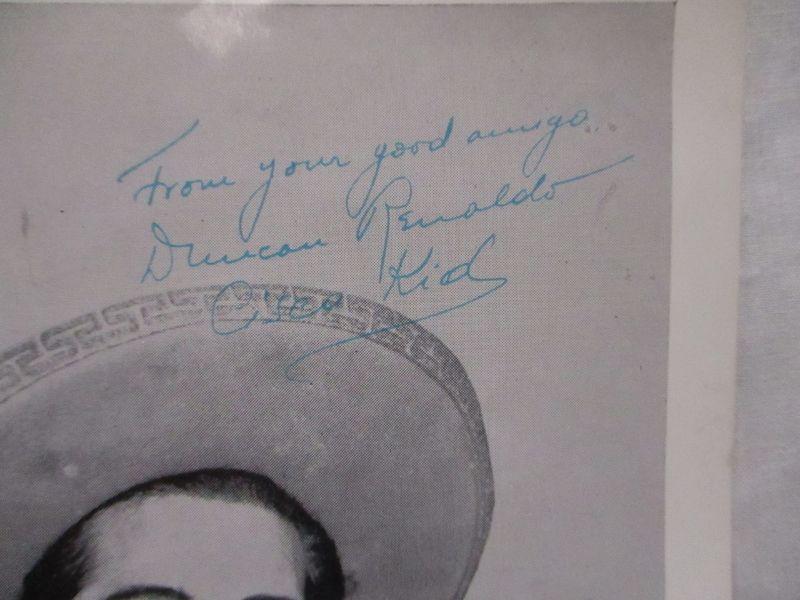 From your good amigo...
Duncan Renaldo
Cisco Kid